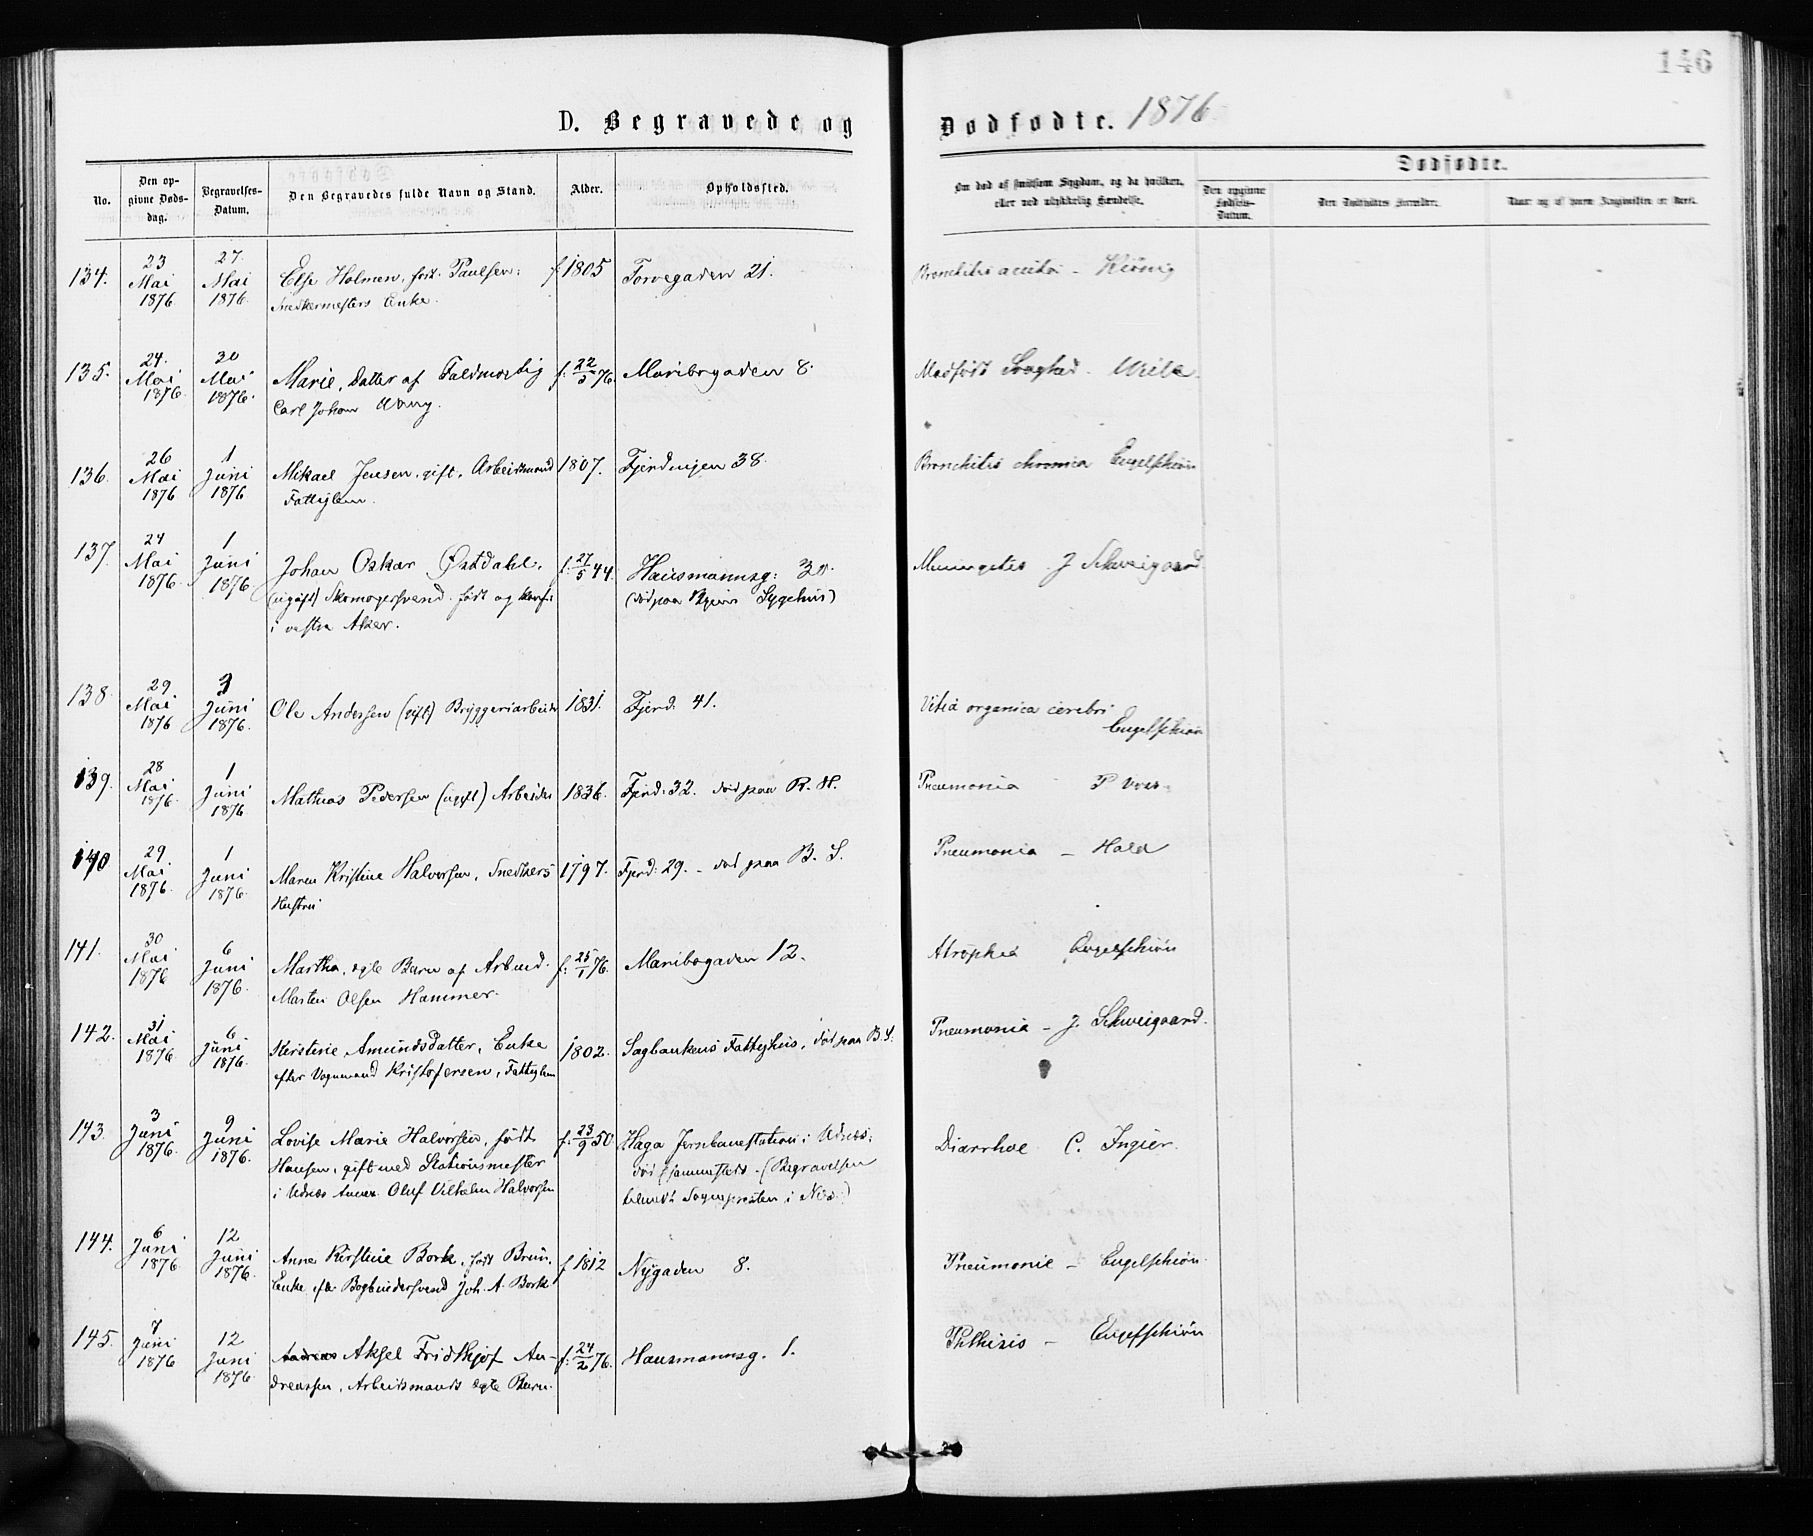 146
D. Begravede og Dødfødte. 1876
No.
Den opgivne Dødsdag.
Begravelses-Datum.
Den Begravedes fulde Navn og Stand.
Alder.
Opholdssted.
Om død af smitsom Sygdom, og da hvilken,
eller ved ulykkelig Hændelse.
Dødfødte.
Den opgivne Fødsels-Datum.
Den Dødfødtes Forældre.
Naar og af hvem Angivelsen er skeet.
134. 23 Mai 1876 27. Mai 1876. Else Holmen, født Paulsen: f. 1805 Torvegaden 21. Bronchitis acuta - Kiönig
Snedkermesters Enke.
135. 24. Mai 1876. 30 Mai 1876. Marie, Datter af Faldmægtig f. 22/5 76. Maribogaden 8. Medfødt Svaghed.
Carl Johan
136. 26 Mai 1876 1 Juni 1876 Mikael Jensen, gift, Arbeidsmand 1807. Fjerdingen 38. Bronchitis chronica Engelschiøn
Fattiglem.
137. 24 Mai 1876. 1 Juni 1876 Johan Oskar Østdahl, f. 27/5 44. Hausmannsg: 30. Meningitis J Schweigaard
(ugift) Skomagersvend. født og konf. (død paa Byens Sygehus)
i vestre Aker.
138. 29 Mai 1876 3 Juni 1876. Ole Andersen (gift) Bryggeriarbeider 1831. Fjerd: 41. Vitia organica cerebri
Engelschiøn
139. 28 Mai 1876. 1 Juni 1876 Mathias Pedersen (ugift) Arbeider 1836. Fjerd: 32. død paa R. H. Pneumonia P Voss.
140 29 Mai 1876. 1 Juni 1876. Maren Kristine Halvorsen, Snedkers 1797. Fjerd: 29. - død paa B. S. Pneumonia - Hald
Hustru
141. 30 Mai 1876 6 Juni 1876. Martha, egte Barn af Arbmd. f. 25/1 76. Maribogaden 12. Atrophia Engelschiøn
Marten Olsen Hammer.
142. 31 Mai 1876 6 Juni 1876. Kirstine Amundsdatter, Enke 1802. Sagbankens Fattighus, død paa B. S. Pneumonia - J. Schweigaard.
efter Vognmand Kristofersen, Fattiglem
143. 3 Juni 1876. 9 Juni 1876. Lovise Marie Halvorsen, født f. 23/9 50. Haga Jernbanestation i Udnes: Diarrhoe C. Ingier.
Hansen, gift med Stationsmester død sammesteds - (Begravelsen
i Udnes Annex Oluf Vilhelm Halvorsen Sognepresten i Næs.)
144. 6 Juni 1876 12 Juni 1876. Anne Kirstine Bork, født Bruun, f 1812 Nygaden 8. Pneumonie - Engelschiøn.
Enke efter Bogbindersvend Joh. A. Bork
145. 7 Juni 1876 12 Juni 1876. Andreas Aksel Fridthjof An- f. 24/2 76. Hausmannsg. 1. Phthisis - Engelschiøn
dreassen, Arbeidsmands egte Barn.